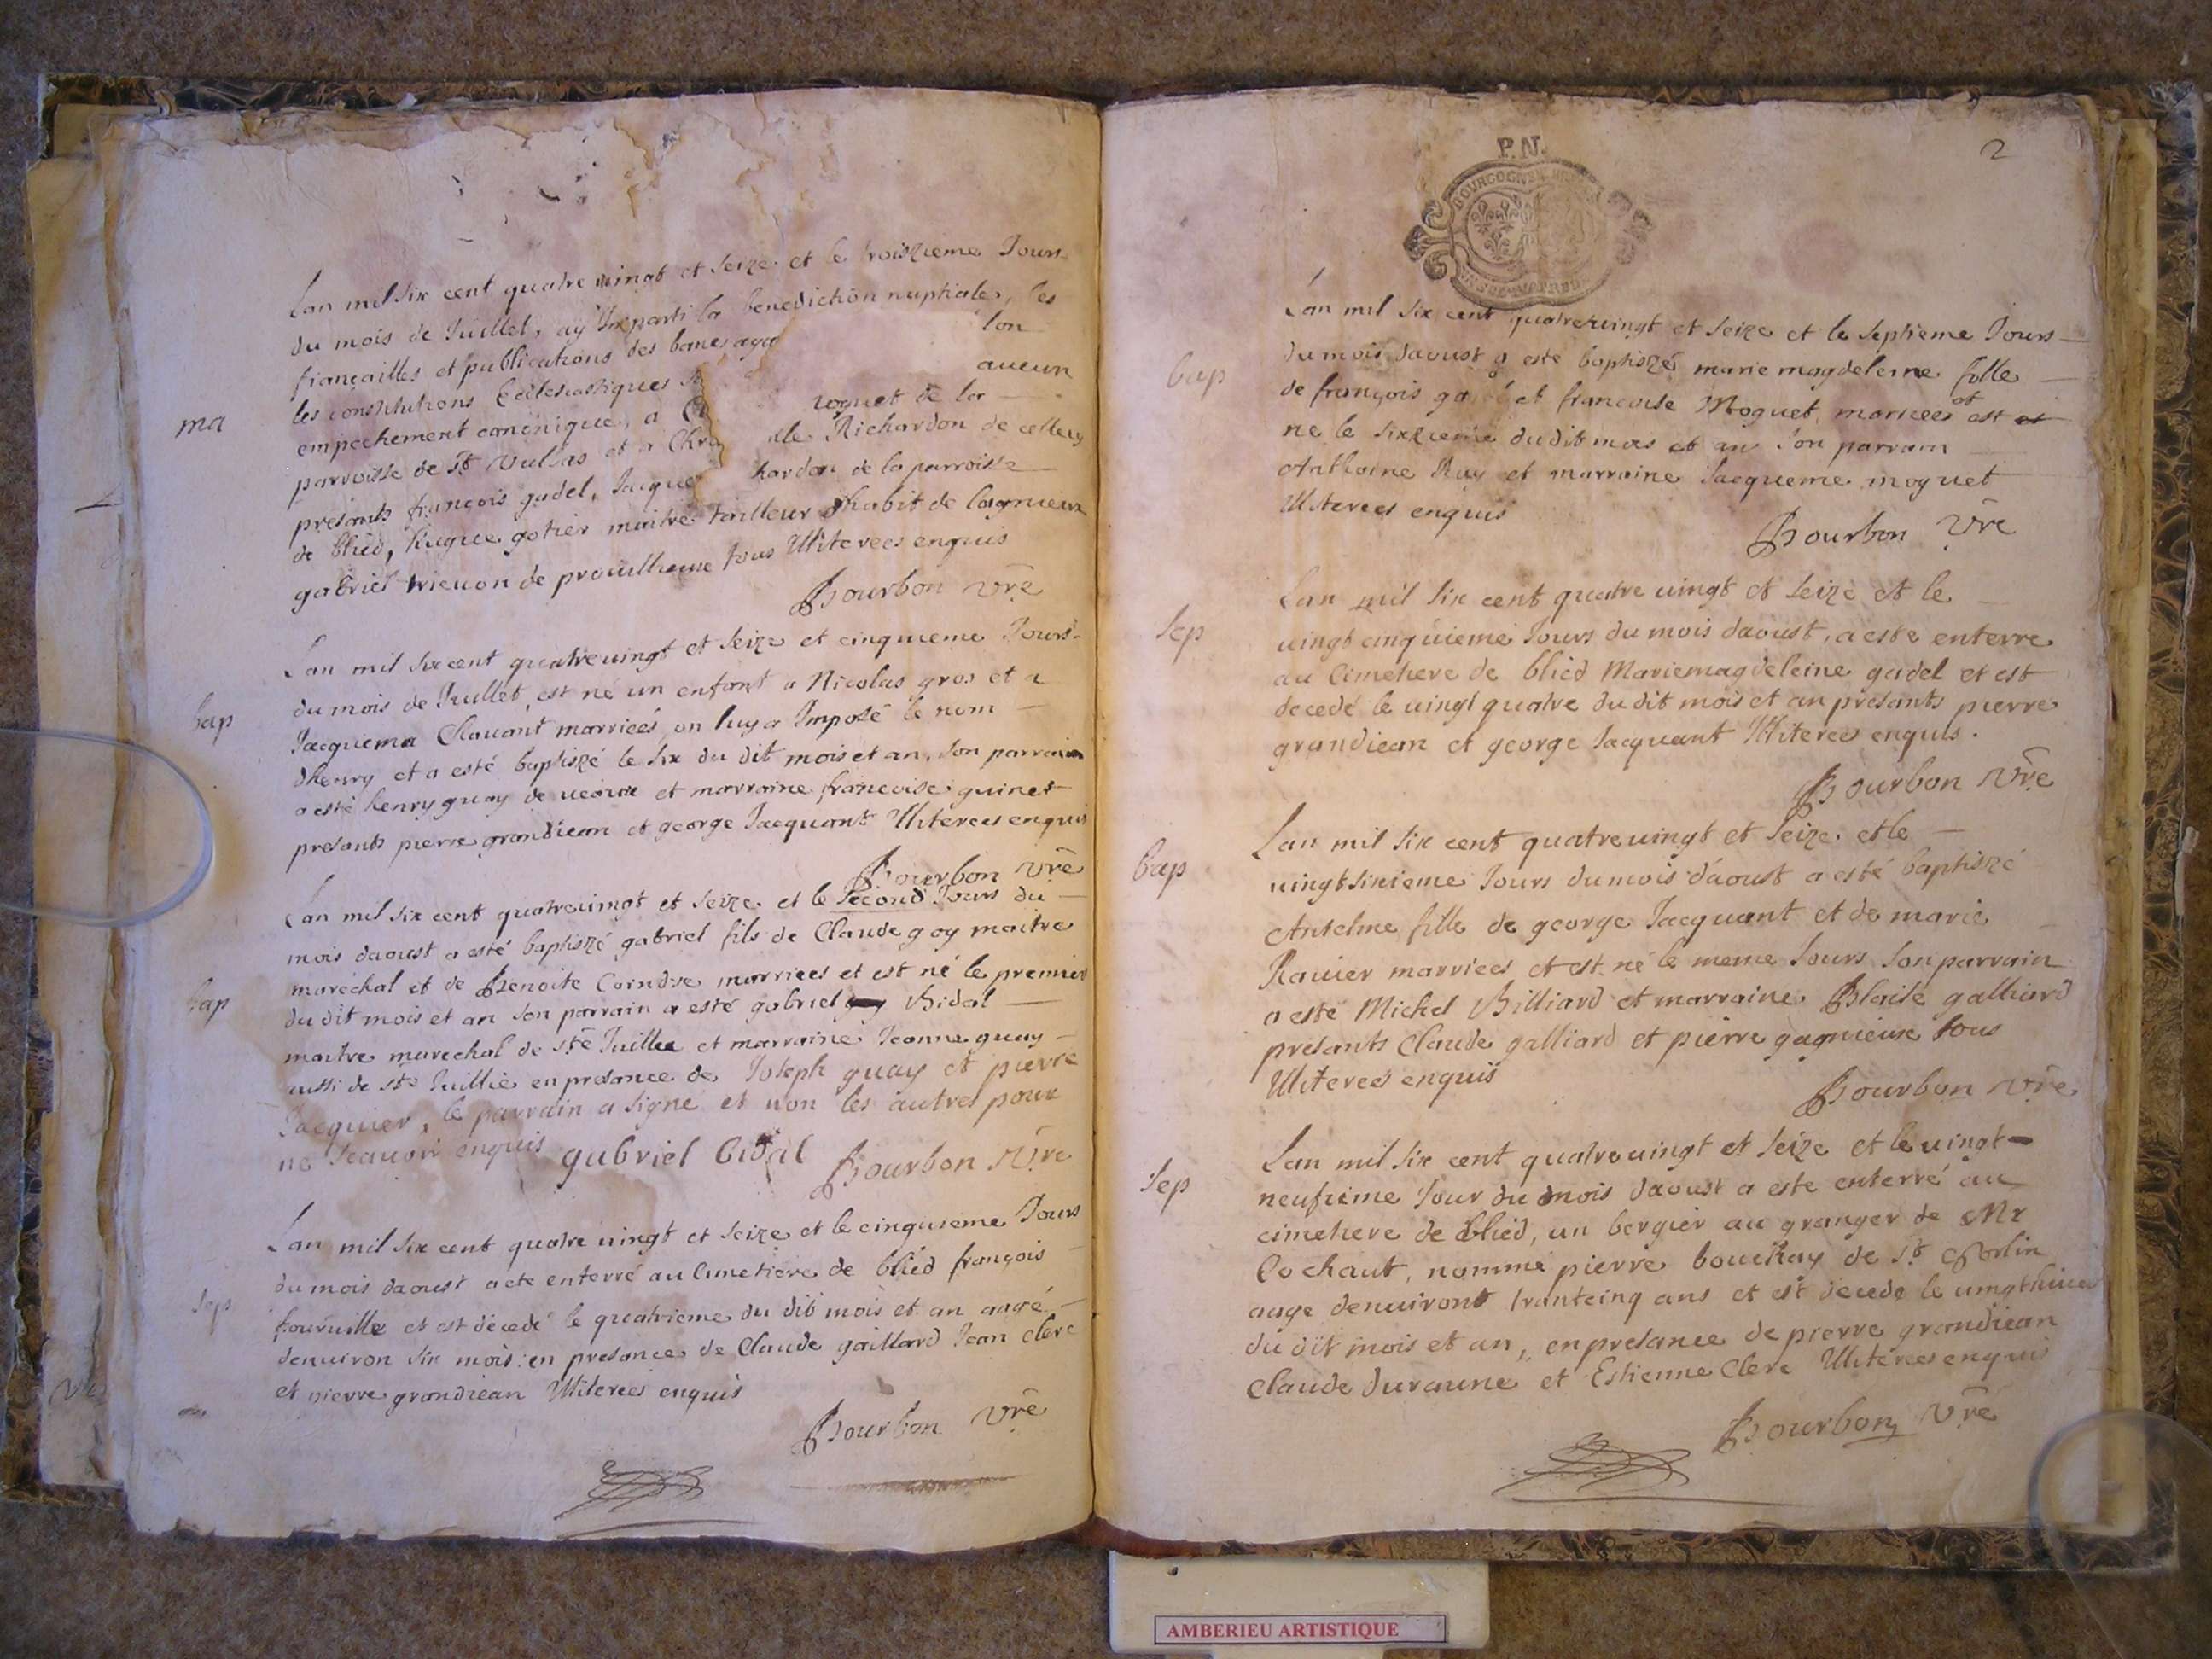 Lan mil six cent quatre vingt et seize et le troiszieme Jours
du mois de Juillet, ay Imparti la benediction nuptiale, les
fiançailles et publications des banes aya lon
les constitutions Ecclesiastiques aucun
ma
empechement canonique, a roquet de la
parroisse de st Vulbas et a lle Richardon de celleuy
presants françois gadel, Jacque hardon de la parroisse
de blied, hugue gotier maitre tailleur dhabit de lagnieux
gabriel trieuon de prouilheuse tous Illiterees enquis
Bourbon vre
Lan mil six cent quatre uingt et seize et cinquieme Jours
du mois de Juillet, est né un enfant a Nicolas gros et a
bap
Jacquema Clauant marrieés on luy a Imposé le nom
dhenry et a esté baptiszé le six du dit mois et an, son parrain
a esté henry guay de et marraine francoise guinet
presants pierre grandiean et george Jacquant Illiterees enquis
Bourbon vre
Lan mil six cent quatreuingt et seize et le second Jours du
mois daoust a esté baptiszé gabriel fils de Claude goy maitre
bap
marechal et de Benoite Coindre marriees et est né le premier
du dit mois et an son parrain a esté gabriel Bidal
maitre marechal de ste Juillie et marraine Jeanne guay
aussi de ste Juillie en presance de Joseph guay et pierre
Jacquier, le parrain a signé et non les autres pour
ne scauoir enquis gabriel bidal Bourbon vre
Lan mil six cent quatre uingt et seize et le cinquieme Jours
du mois daoust a ete enterré au Cimetiere de blied françois
sep
fouruille et est décedé le quatrieme du dit mois et an aagé
denuiron six mois en presance de Claude gaillard Jean clerc
et pierre grandiean Illiterees enquis
Bourbon vre
P.N.
2
BOURGOGNE
Lan mil six cent quatreuingt et seize et le septieme Jours
bap
du mois daoust a este baptiszé marie magdeleine fille
de françois gadel et francoise Moguet marieés et est
ne le sixzieme du dit mois et an son parrain
Anthoine Ruy et marraine Jacqueme moguet
Illiterees enquis
Bourbon vre
Lan mil six cent quatre uingt et seize et le
sep
uingt cinquieme Jours du mois daoust, a este enterre
au Cimetiere de blied Mariemagdeleine gadel et est
decedé le uingt quatre du dit mois et an presants pierre
grandiean et george Jacquant Illiterees enquis.
Bourbon vre
Lan mil six cent quatreuingt et seize et le
bap
uingt sixieme Jours du mois d'aoust a esté baptiszé
Antelme fille de george Jacquant et de marie
Rauier marriees et est né le meme Jours son parrain
a este Michel Billiard et marraine Blaise galliard
presants Claude galliard et pierre gagnieux tous
Illiterees enquis
Bourbon vre
Lan mil six cent quatre uingt et seize et le uingt
sep
neufieme Jour du mois daoust a este enterré au
cimetiere de blied, un bergier au granger de Mr
Cochaut, nommé pierre bouchay de st
aage denuiront trantcinq ans et est decede le uingthuict
du dit mois et an, en presance de pierre grandiean
Claude Duraune et Estienne Clerc Illiterees enquis
Bourbon vre
AMBERIEU ARTISTIQUE